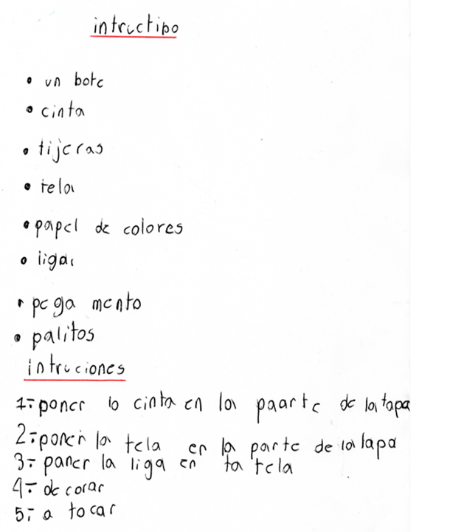 intructibo
• un bote
• cinta
• tijeras
• tela
• papel de colores
• ligas
• pega mento
• palitos
intruciones
1-. poner la cinta en la paarte de la tapa
2-. poner la tela en la parte de la lapa
3-. paner la liga en ta tela
4-. decorar
5-. a tocar